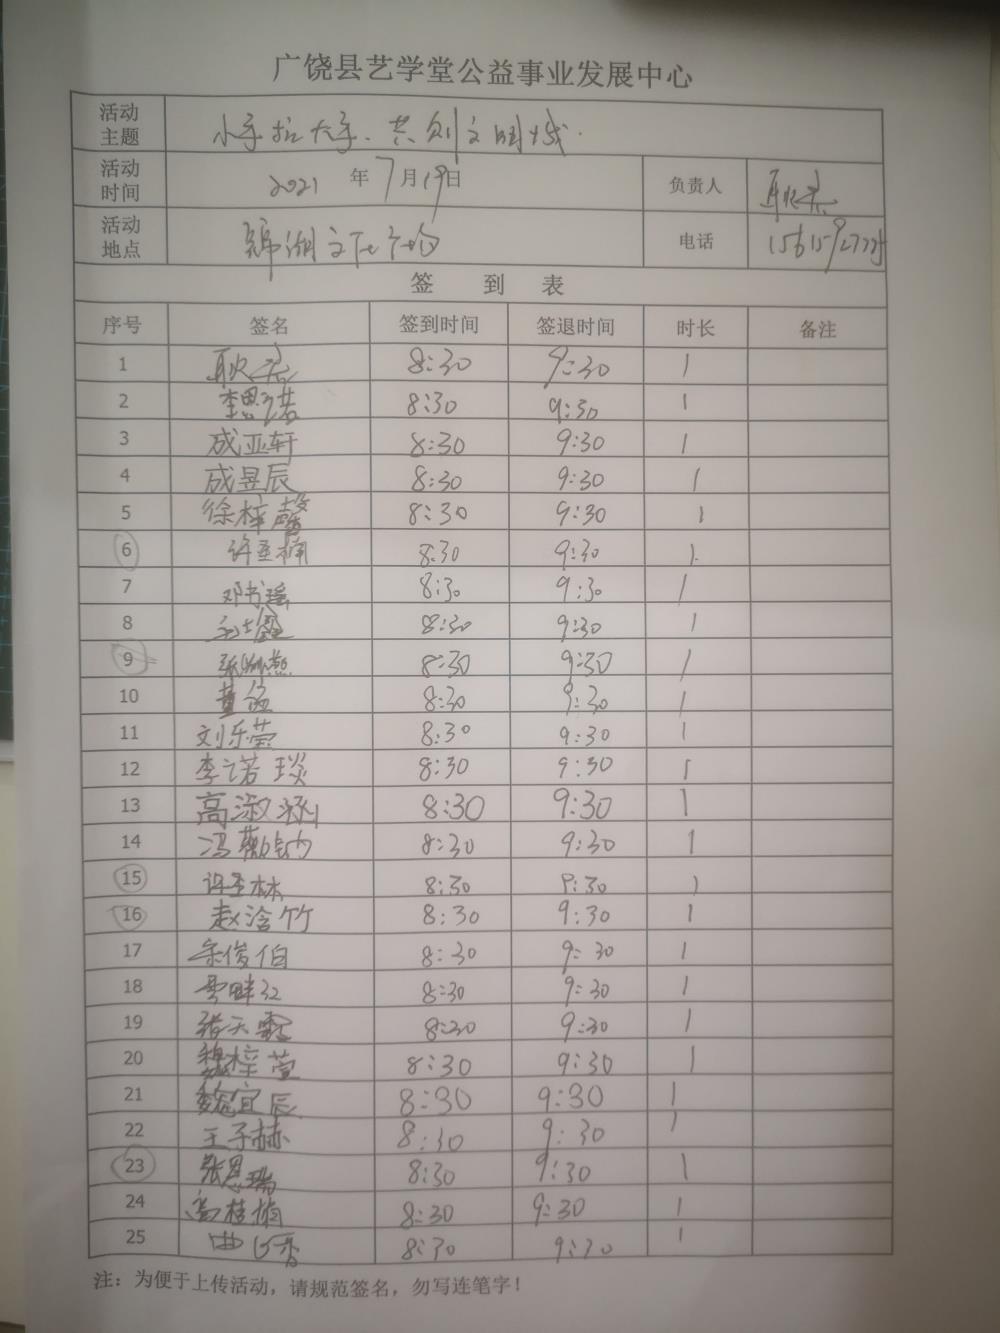 广饶县艺学堂公益事业发展中心
活动主题 小手拉大手、共创文明城.
活动时间 2021 年 7 月 19 日 负责人
活动地点 电话
签 到 表
序号 签名 签到时间 签退时间 时长 备注
1 8:30 9:30 1
2 李思诺 8:30 9:30 1
3 成亚轩 8:30 9:30 1
4 成昱辰 8:30 9:30 1
5 徐梓馨 8:30 9:30 1
6 8:30 9:30 1
7 邓书瑶 8:30 9:30 1
8 8:30 9:30 1
9 8:30 9:30 1
10 8:30 9:30 1
11 刘乐莹 8:30 9:30 1
12 李诺琰 8:30 9:30 1
13 高淑涵 8:30 9:30 1
14 8:30 9:30 1
15 8:30 9:30 1
16 赵浛竹 8:30 9:30 1
17 宋俊伯 8:30 9:30 1
18 8:30 9:30 1
19 8:30 9:30 1
20 魏梓萱 8:30 9:30 1
21 魏宜辰 8:30 9:30 1
22 王子赫 8:30 9:30 1
23 张恩瑞 8:30 9:30 1
24 8:30 9:30 1
25 8:30 9:30 1
注：为便于上传活动，请规范签名，勿写连笔字！